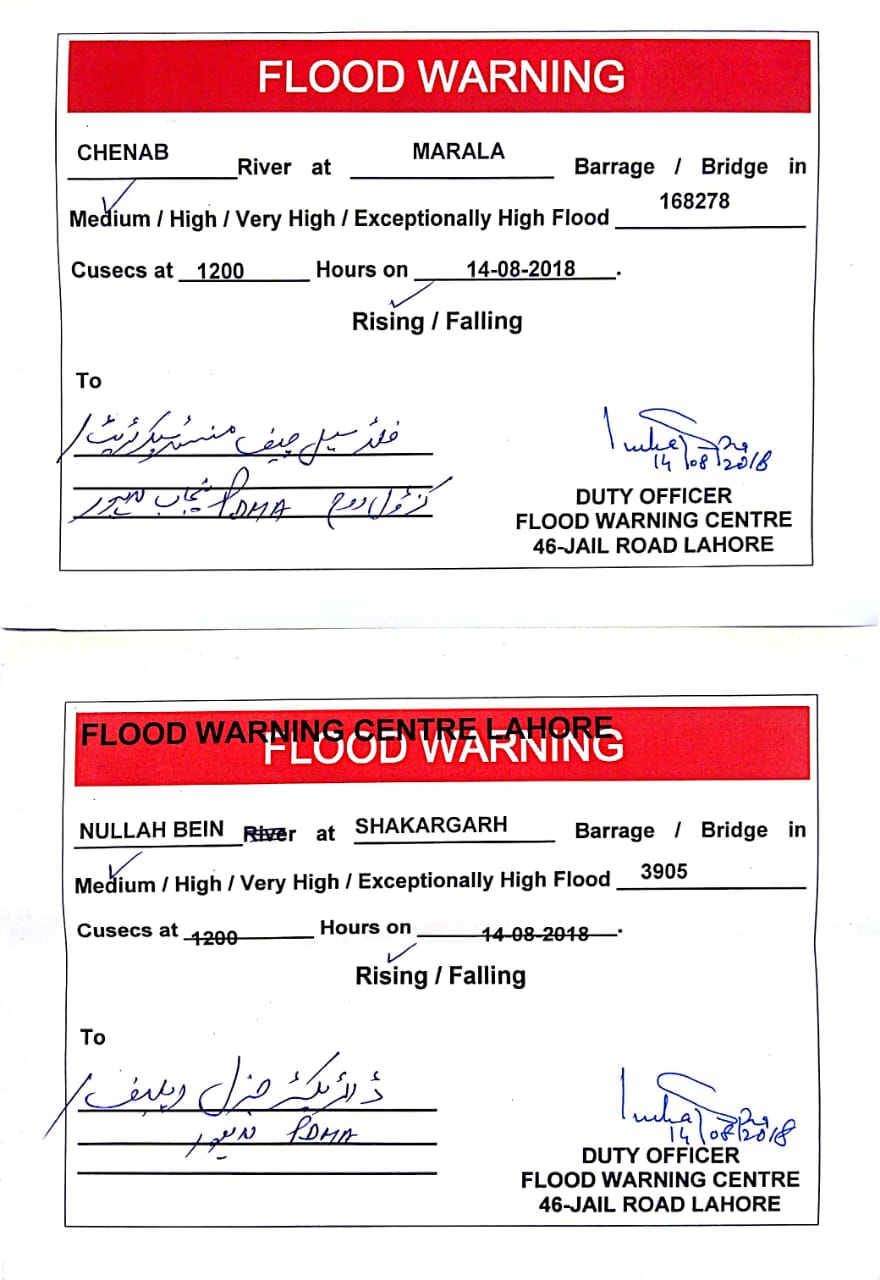 FLOOD WARNING
CHENAB River at MARALA Barrage / Bridge in
Medium / High / Very High / Exceptionally High Flood 168278
Cusecs at 1200 Hours on 14-08-2018.
Rising / Falling
To
فلڈ سیل چیف منسٹر سیکرٹریٹ/
کنٹرول روم PDMA پنجاب لاہور
14/08/2018
DUTY OFFICER
FLOOD WARNING CENTRE
46-JAIL ROAD LAHORE
FLOOD WARNING CENTRE LAHORE
FLOOD WARNING
NULLAH BEIN River at SHAKARGARH Barrage / Bridge in
Medium / High / Very High / Exceptionally High Flood 3905
Cusecs at 1200 Hours on 14-08-2018.
Rising / Falling
To
ڈائریکٹر جنرل ریلیف/
PDMA لاہور
14/08/2018
DUTY OFFICER
FLOOD WARNING CENTRE
46-JAIL ROAD LAHORE